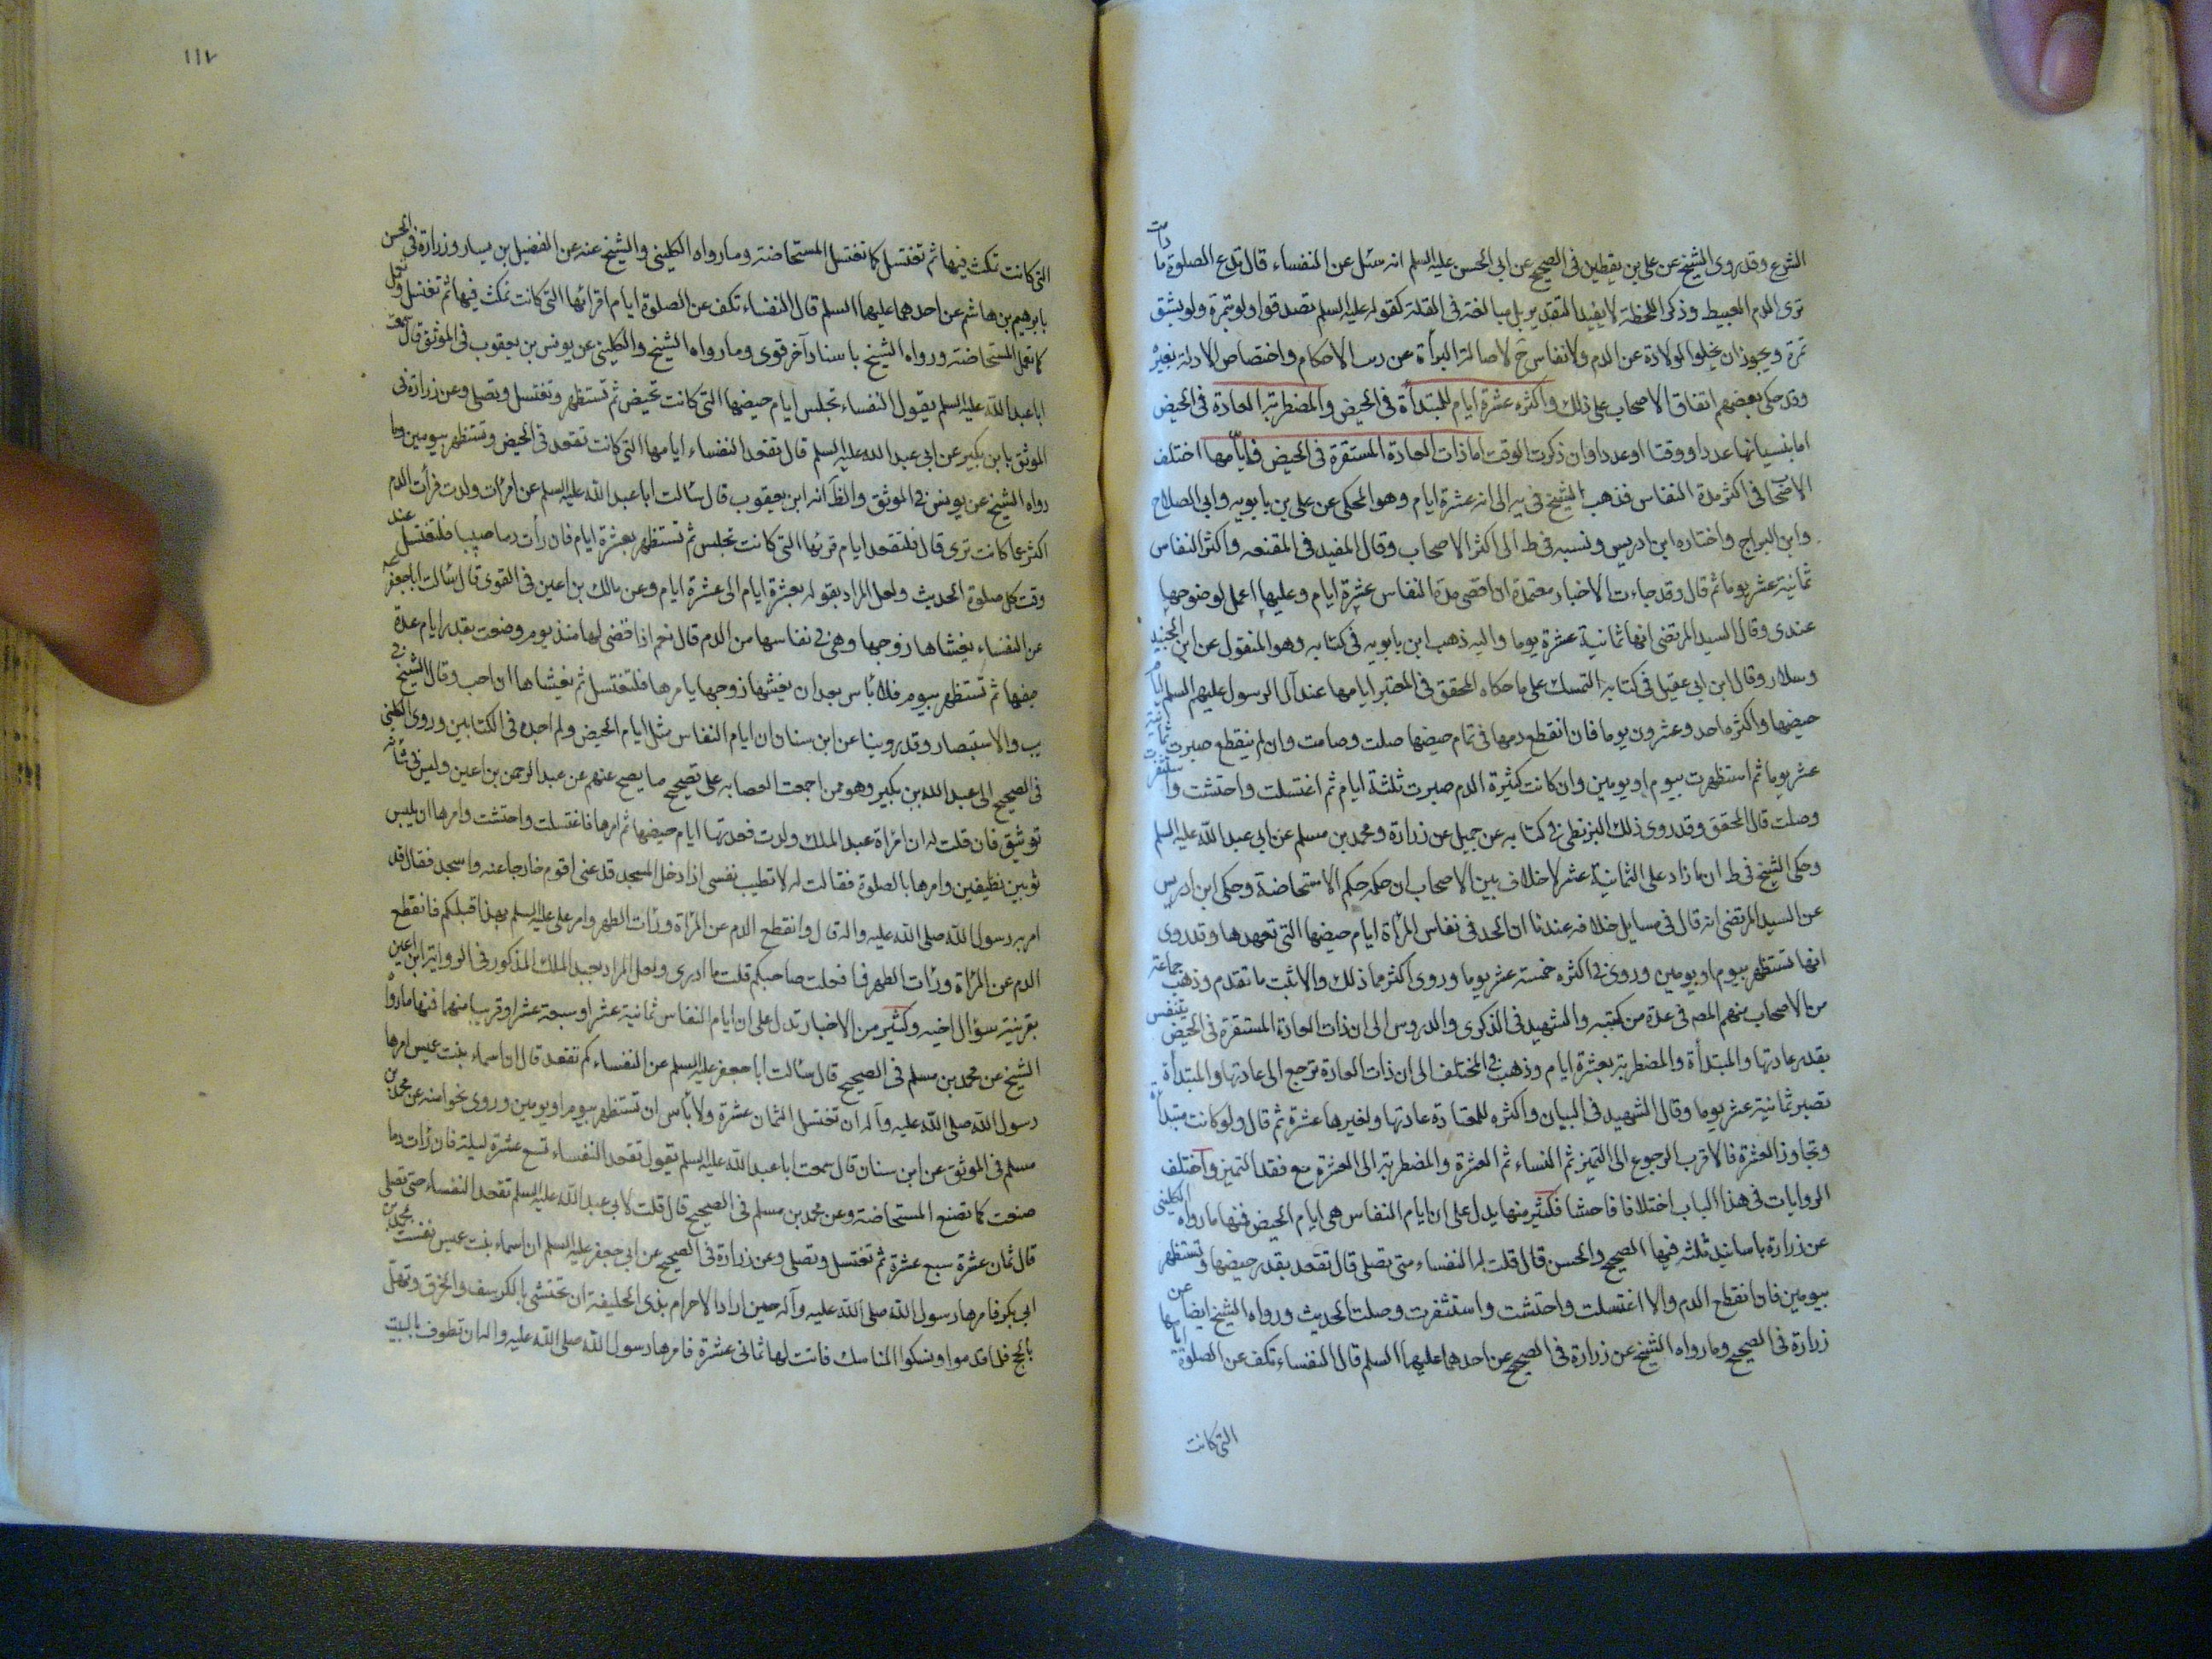 الشرع وقد روى الشيخ عن علي بن يقطين في الصحيح عن ابي الحسن عليه السلم انه سئل عن النفساء قال تدع الصلوة ما دامت
ترى الدم العبيط وذكر اللحظة لا يفيد التقدير بل مبالغة في القلة كقوله عليه السلم تصدقوا ولو بتمرة ولو بشق
تمرة ويجوز ان يخلوا لولادة عن الدم ولا نفاس ح لاصالة البرأة عن الاحكام واختصاص الادلة بغيره
وقد حكى بعضهم اتفاق الاصحاب على ذلك واكثره عشرة ايام للمبتدأة في الحيض والمضطربة العادة في الحيض
اما بنسيانها عددا ووقتا او عددا وان ذكرت الوقت اما ذات العادة المستقرة في الحيض فايامها اختلف
الاصحا في اكثر مدة النفاس فذهب الشيخ في يه الى انه عشرة ايام وهو المحكى عن علي بن بابويه وابي الصلاح
وابن البراج واختاره ابن ادريس ونسبه في ط الى اكثر الاصحاب وقال المفيد في المقنعه واكثر النفاس
ثمانية عشر يوما ثم قال وقد جاءت الاخبار معتمدة ان اقصى مدة النفاس عشرة ايام وعليها اعمل لوضوحها
عندى وقال السيد المرتضى انها ثمانية عشرة يوما واليه ذهب ابن بابويه في كتابه وهو المنقول عن ابن الجنيد
وسلار وقال ابن ابي عقيل في كتابه التمسك على ما حكاه المحقق في المعتبر ايامها عند آل الرسول عليهم السلم ايام
حيضها واكثره احد وعشرون يوما فان انقطع دمها في تمام حيضها صلت وصامت وان لم ينقطع صبرت ثمانية
عشر يوما ثم استظهرت بيوم او يومين وان كانت كثيرة الدم صبرت ثلثة ايام ثم اغتسلت واحتشت واستثفرت
وصلت قال المحقق وقد روى ذلك البزنطى في كتابه عن جميل عن زرارة ومحمد بن مسلم عن ابي عبد الله عليه السلم
وحكى الشيخ في ط ان ما زاد على الثمانية عشر لا خلاف بين الاصحاب ان حكمه حكم الاستحاضة وحكى ابن ادريس
عن السيد المرتضى انه قال في مسايل خلافه عندنا ان الحد في نفاس المرأة ايام حيضها التي تعهدها وقد روى
انها تستظهر بيوم او يومين وروى في اكثره خمسة عشر يوما وروى اكثر من ذلك والاثبت ما تقدم وذهب جماعة
من الاصحاب منهم المصه في عدة من كتبه والشهيد في الذكرى والدروس الى ان ذات العادة المستقرة في الحيض تتنفس
بقدر عادتها والمبتدأة والمضطربة بعشرة ايام وذهب في المختلف الى ان ذات العادة ترجع الى عادتها والمبتدأة
تصبر ثمانية عشر يوما وقال الشهيد في البيان واكثره للمعتادة عادتها ولغيرها عشرة ثم قال ولو كانت مبتدأة
وتجاوز العشرة فالاقرب الرجوع الى التميز ثم النساء ثم العشرة والمضطربة الى العشرة مع فقد التميز واختلف
الروايات في هذا الباب اختلافا فاحشا فكثير منها يدل على ان ايام النفاس هي ايام الحيض فمنها ما رواه الكليني
عن زرارة باسانيد ثلثه فيها الصحيح والحسن قال قلت له النفساء متى تصلى قال تقعد بقدر حيضها وتستظهر
بيومين فان انقطع الدم والا اغتسلت واحتشت واستثفرت وصلت الحديث ورواه الشيخ ايضا عن
زرارة في الصحيح وما رواه الشيخ عن زرارة في الصحيح عن احدهما عليهما السلم قال النفساء تكف عن الصلوة ايامها
التي كانت
١١٧
التي كانت تمكث فيها ثم تغتسل كما تغتسل المستحاضة وما رواه الكليني والشيخ عنه عن الفضيل بن يسار وزرارة في الحسن
بابرهيم بن هاشم عن احدهما عليهما السلم قال النفساء تكف عن الصلوة ايام اقرائها التي كانت تمكث فيها ثم تغتسل وتعمل
كما تعمل المستحاضة ورواه الشيخ باسناد آخر قوى وما رواه الشيخ والكليني عن يونس بن يعقوب في الموثق قال سمعت
ابا عبد الله عليه السلم يقول النفساء تجلس ايام حيضها التي كانت تحيض ثم تستظهر وتغتسل وتصلى وعن زرارة في
الموثق بابن بكير عن ابي عبد الله عليه السلم قال تقعد النفساء ايامها التي كانت تقعد في الحيض وتستظهر بيومين وما
رواه الشيخ عن يونس في الموثق والظ انه ابن يعقوب قال سالت ابا عبد الله عليه السلم عن امرأت ولدت فرأت الدم
اكثر مما كانت ترى قال فلتقعد ايام قرئها التي كانت تجلس ثم تستظهر بعشرة ايام فان رأت دما صبيبا فلتغتسل عند
وقت كل صلوة الحديث ولعل المراد بقوله بعشرة ايام الى عشرة ايام وعن مالك بن اعين في القوى قال سالت ابا جعفر عه
عن النفساء يغشاها زوجها وهي في نفاسها من الدم قال نعم اذا قضى لها منذ يوم وضعت بقدر ايام عدة
حيضها ثم تستظهر بيوم فلا بأس بعد ان يغشها زوجها يامرها فلتغتسل ثم يغشاها ان احب وقال الشيخ في
يب والاستبصار وقد روينا عن ابن سنان ان ايام النفاس مثل ايام الحيض ولم اجده في الكتابين وروى الكليني
في الصحيح الى عبد الله بن بكير وهو ممن اجمعت العصابه على تصحيح ما يصح عنهم عن عبد الرحمن بن اعين وليس في شأنه
توثيق فان قلت له ان امرأة عبد الملك ولدت فعد لها ايام حيضها ثم امرها فاغتسلت واحتشت وامرها ان يلبس
ثوبين نظيفين وامرها بالصلوة فقالت له لا تطيب نفسى ان ادخل المسجد فدعنى اقوم خارجا عنه واسجد فقال قد
امر به رسول الله صلى الله عليه واله قال وانقطع الدم عن المرأة ورأت الطهر وامر علي عليه السلم بهذا قبلكم فانقطع
الدم عن المرأة ورأت الطهر فما فعلت صاحبكم قلت ما ادرى ولعل المراد بعبد الملك المذكور في الرواية ابن اعين
بقرينة سؤال اخيه وكثير من الاخبار تدل على ان ايام النفاس ثمانية عشر او سبعة عشر او قريبا منهما فمنها ما رواه
الشيخ عن محمد بن مسلم في الصحيح قال سالت ابا جعفر عليه السلم عن النفساء كم تقعد قال ان اسماء بنت عميس امرها
رسول الله صلى الله عليه وآله ان تغتسل الثمان عشرة ولا بأس ان تستظهر بيوم او يومين وروى نحوا منه عن محمد بن
مسلم في الموثق عن ابن سنان قال سمعت ابا عبد الله عليه السلم يقول تقعد النفساء تسع عشرة ليلة فان رأت دما
صنعت كما تصنع المستحاضة وعن محمد بن مسلم في الصحيح قال قلت لابي عبد الله عليه السلم تقعد النفساء حتى تصلى
قال ثمان عشرة سبع عشرة ثم تغتسل وتصلى وعن زرارة في الصحيح عن ابي جعفر عليه السلم ان اسماء بنت عميس نفست بمحمد بن
ابي بكر فامرها رسول الله صلى الله عليه وآله حين اراد الاحرام بذى الحليفة ان تحتشى بالكرسف والخرق وتهل
بالحج فلما قدموا ونسكوا المناسك فاتت لها ثمانى عشرة فامرها رسول الله صلى الله عليه واله ان تطوف بالبيت